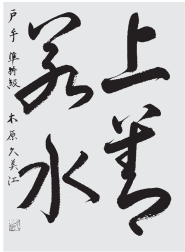 上善
若水
戸手 準特級 木原久美江